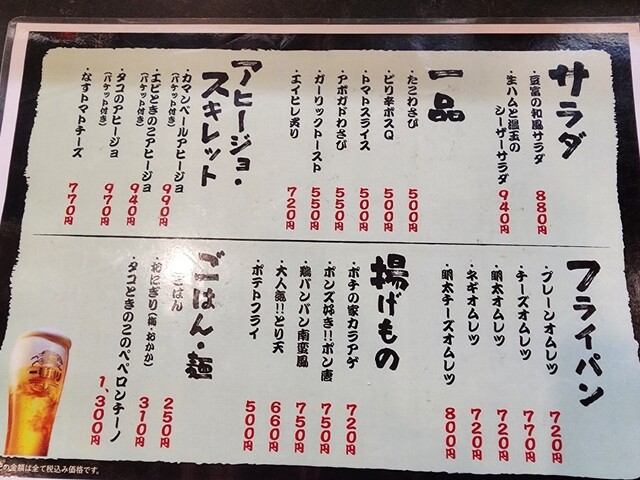 サラダ
・豆富の和風サラダ 880円
・生ハムと温玉の
シーザーサラダ 940円
一品
・たこわさび 500円
・ピリ辛ポスQ 500円
・トマトスライス 500円
・アボガドわさび 550円
・ガーリックトースト 550円
・エイヒレ炙り 720円
アヒージョ・
スキレット
・カマンベールアヒージョ 990円
(バケット付き)
・エビときのこアヒージョ 940円
(バケット付き)
・タコのアヒージョ 970円
(バケット付き)
・なすトマトチーズ 770円
フライパン
・プレーンオムレツ 720円
・チーズオムレツ 770円
・明太オムレツ 720円
・ネギオムレツ 720円
・明太チーズオムレツ 800円
揚げもの
・ポチの家カラアゲ 720円
・ポンズ好き!!ポン唐 750円
・鶏パンパン南蛮風 750円
・大人気!!とり天 660円
・ポテトフライ 500円
ごはん・麺
ごはん 250円
・おにぎり(梅・おかか) 310円
・タコときのこのペペロンチーノ 1,300円
の金額は全て税込み価格です。